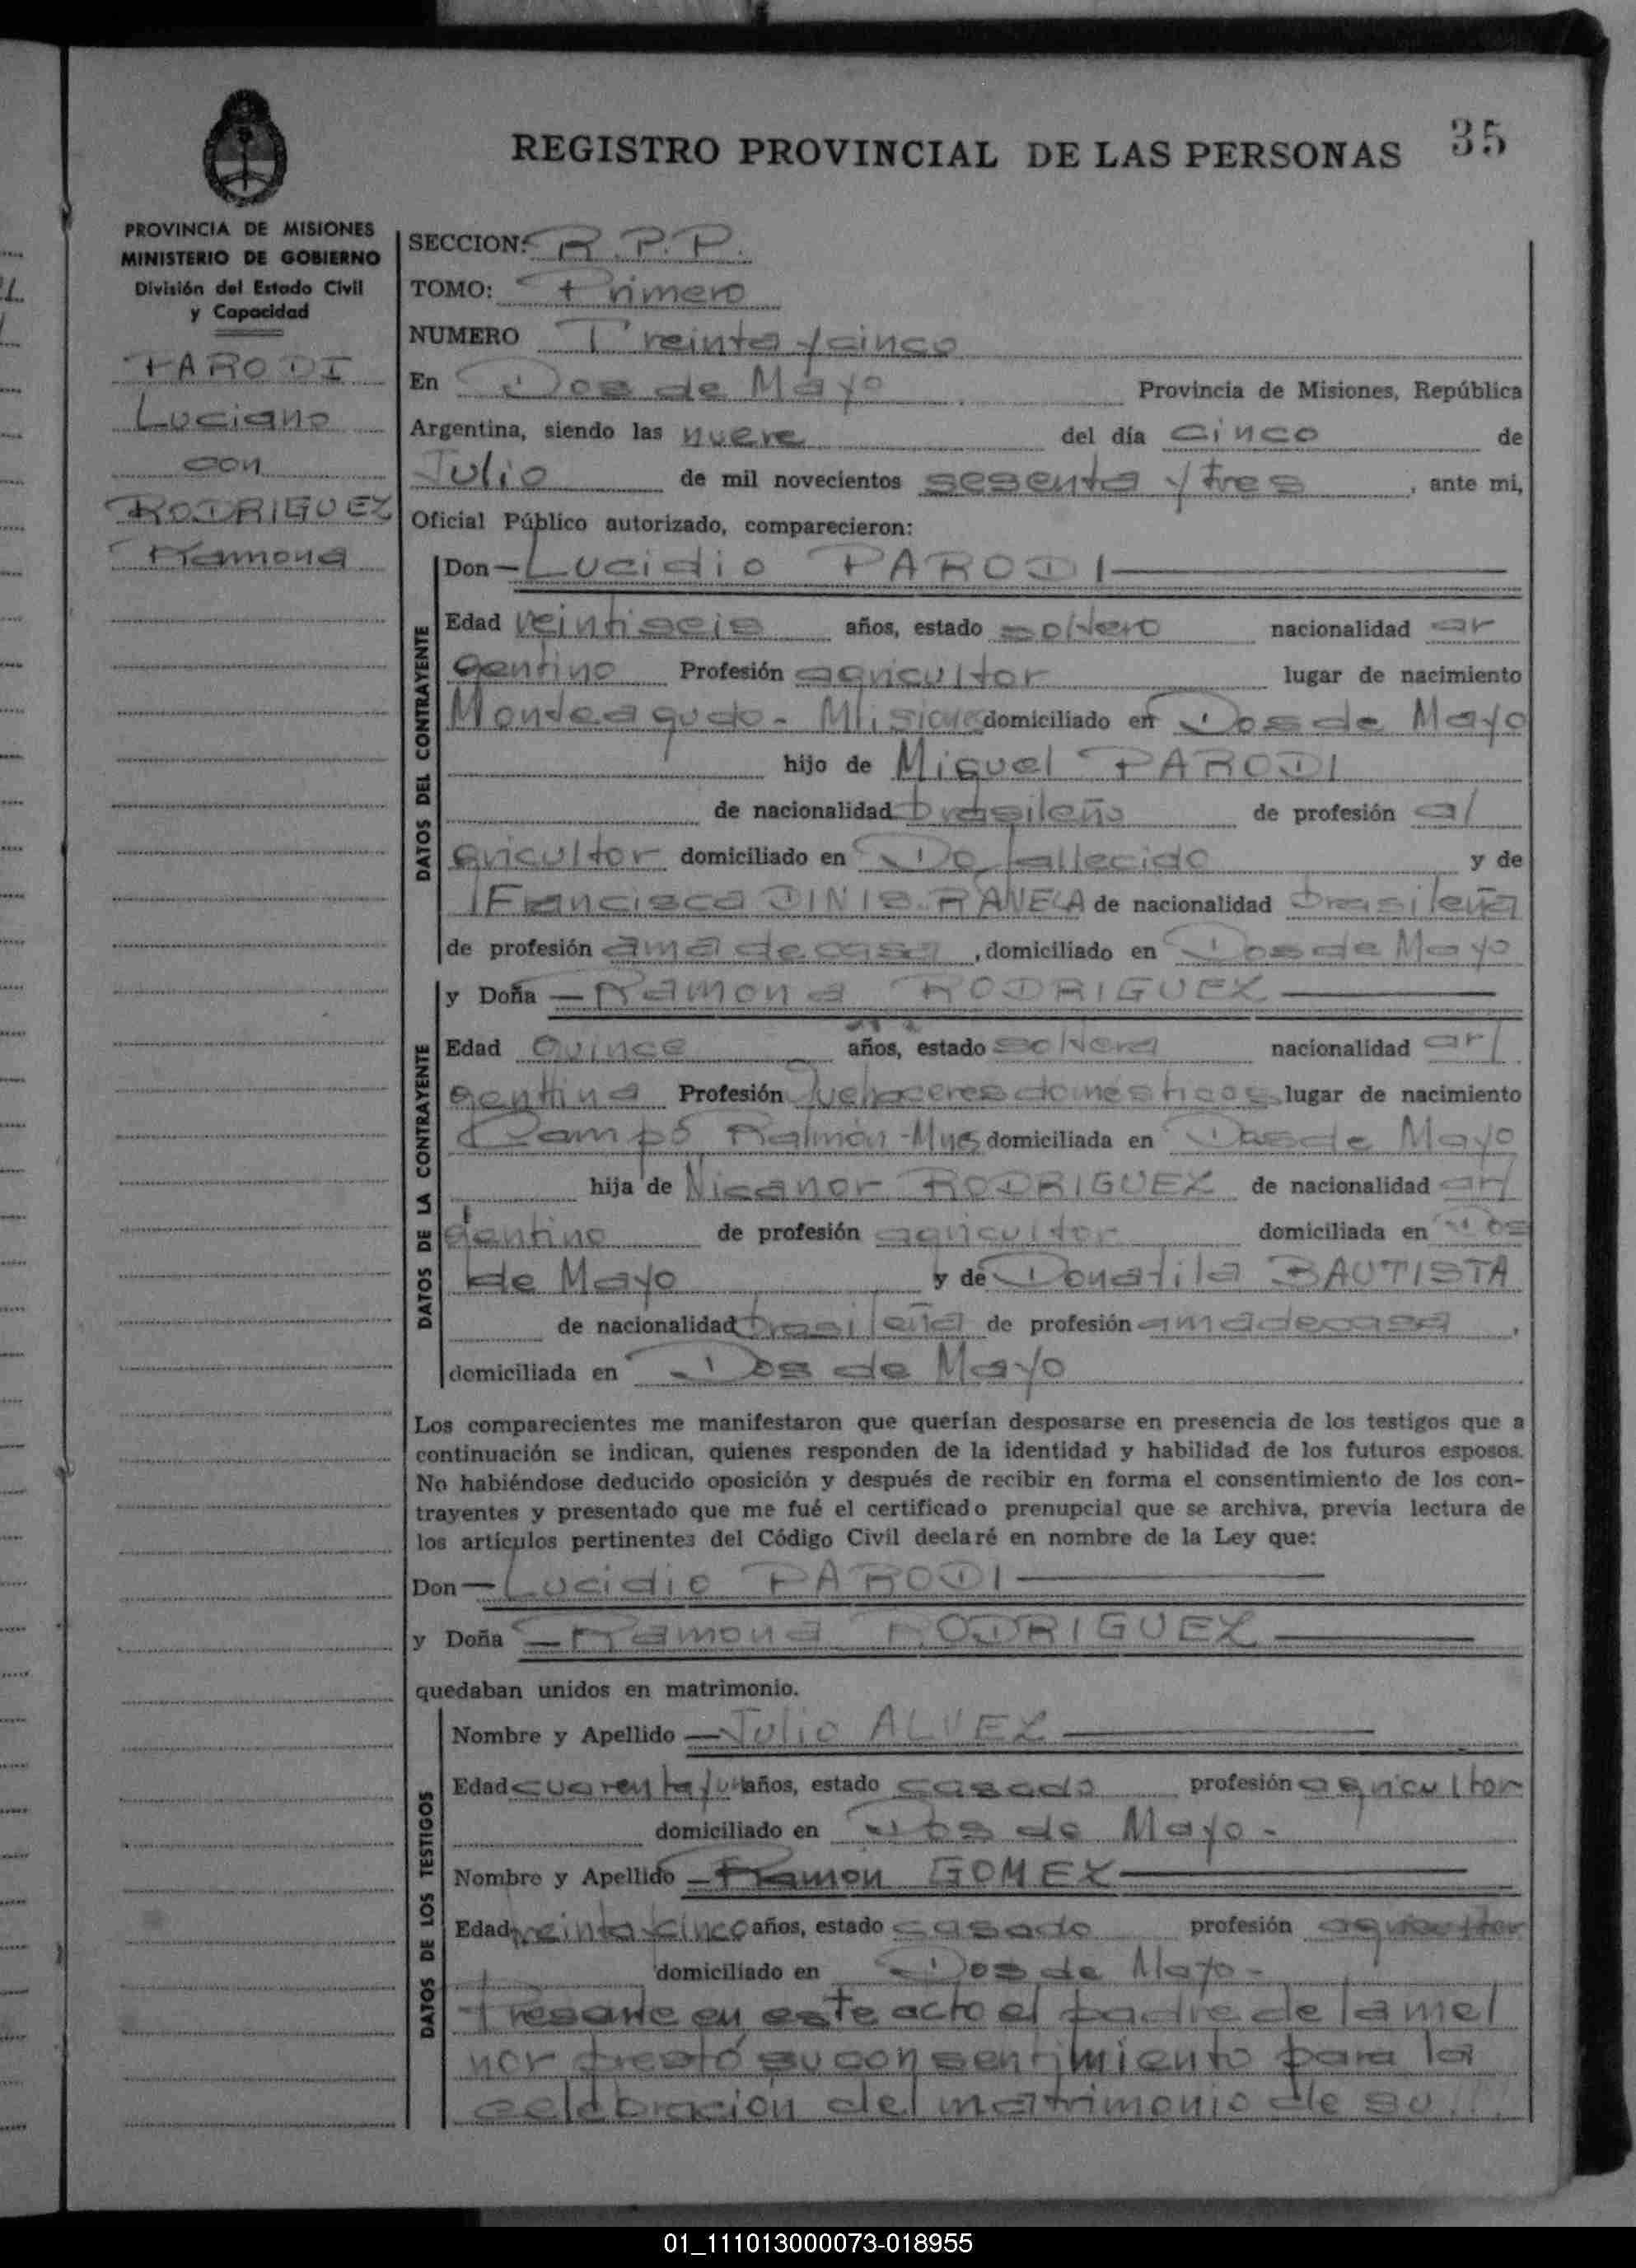 REGISTRO PROVINCIAL DE LAS PERSONAS 35
PROVINCIA DE MISIONES
MINISTERIO DE GOBIERNO
División del Estado Civil
y Capacidad
PARODI
Luciano
con
RODRIGUEZ
Ramona
SECCION: R.P.P.
TOMO: Primero
NUMERO Treinta y cinco
En Dos de Mayo Provincia de Misiones, República
Argentina, siendo las nueve del día cinco de
Julio de mil novecientos sesenta y tres, ante mi,
Oficial Público autorizado, comparecieron:
DATOS DEL CONTRAYENTE
Don — Lucidio PARODI —
Edad veintiseis años, estado soltero nacionalidad ar
gentino Profesión agricultor lugar de nacimiento
Monteagudo - Misiones domiciliado en Dos de Mayo
hijo de Miguel PARODI
de nacionalidad brasileño de profesión a/
gricultor domiciliado en fallecido y de
Francisca DINIS de nacionalidad brasileña
de profesión ama de casa, domiciliado en Dos de Mayo
DATOS DE LA CONTRAYENTE
y Doña — Ramona RODRIGUEZ —
Edad Quince años, estado soltera nacionalidad ar/
gentina Profesión Quehaceres domésticos lugar de nacimiento
Campo Ramón - Mnes domiciliada en Dos de Mayo
hija de Nicanor RODRIGUEZ de nacionalidad ar/
gentino de profesión agricultor domiciliada en Dos
de Mayo y de Donatila BAUTISTA
de nacionalidad brasileña de profesión ama de casa,
domiciliada en Dos de Mayo
Los comparecientes me manifestaron que querían desposarse en presencia de los testigos que a
continuación se indican, quienes responden de la identidad y habilidad de los futuros esposos.
No habiéndose deducido oposición y después de recibir en forma el consentimiento de los con-
trayentes y presentado que me fué el certificado prenupcial que se archiva, previa lectura de
los artículos pertinentes del Código Civil declaré en nombre de la Ley que:
Don — Lucidio PARODI —
y Doña — Ramona RODRIGUEZ —
quedaban unidos en matrimonio.
DATOS DE LOS TESTIGOS
Nombre y Apellido — Julio ALVEZ —
Edad cuarenta y un años, estado casado profesión agricultor
domiciliado en Dos de Mayo -
Nombre y Apellido — Ramón GOMEZ —
Edad treinta y cinco años, estado casado profesión agricultor
domiciliado en Dos de Mayo -
Presente en este acto el padre de la me/
nor prestó su consentimiento para la
celebración del matrimonio de su ///
01_111013000073-018955